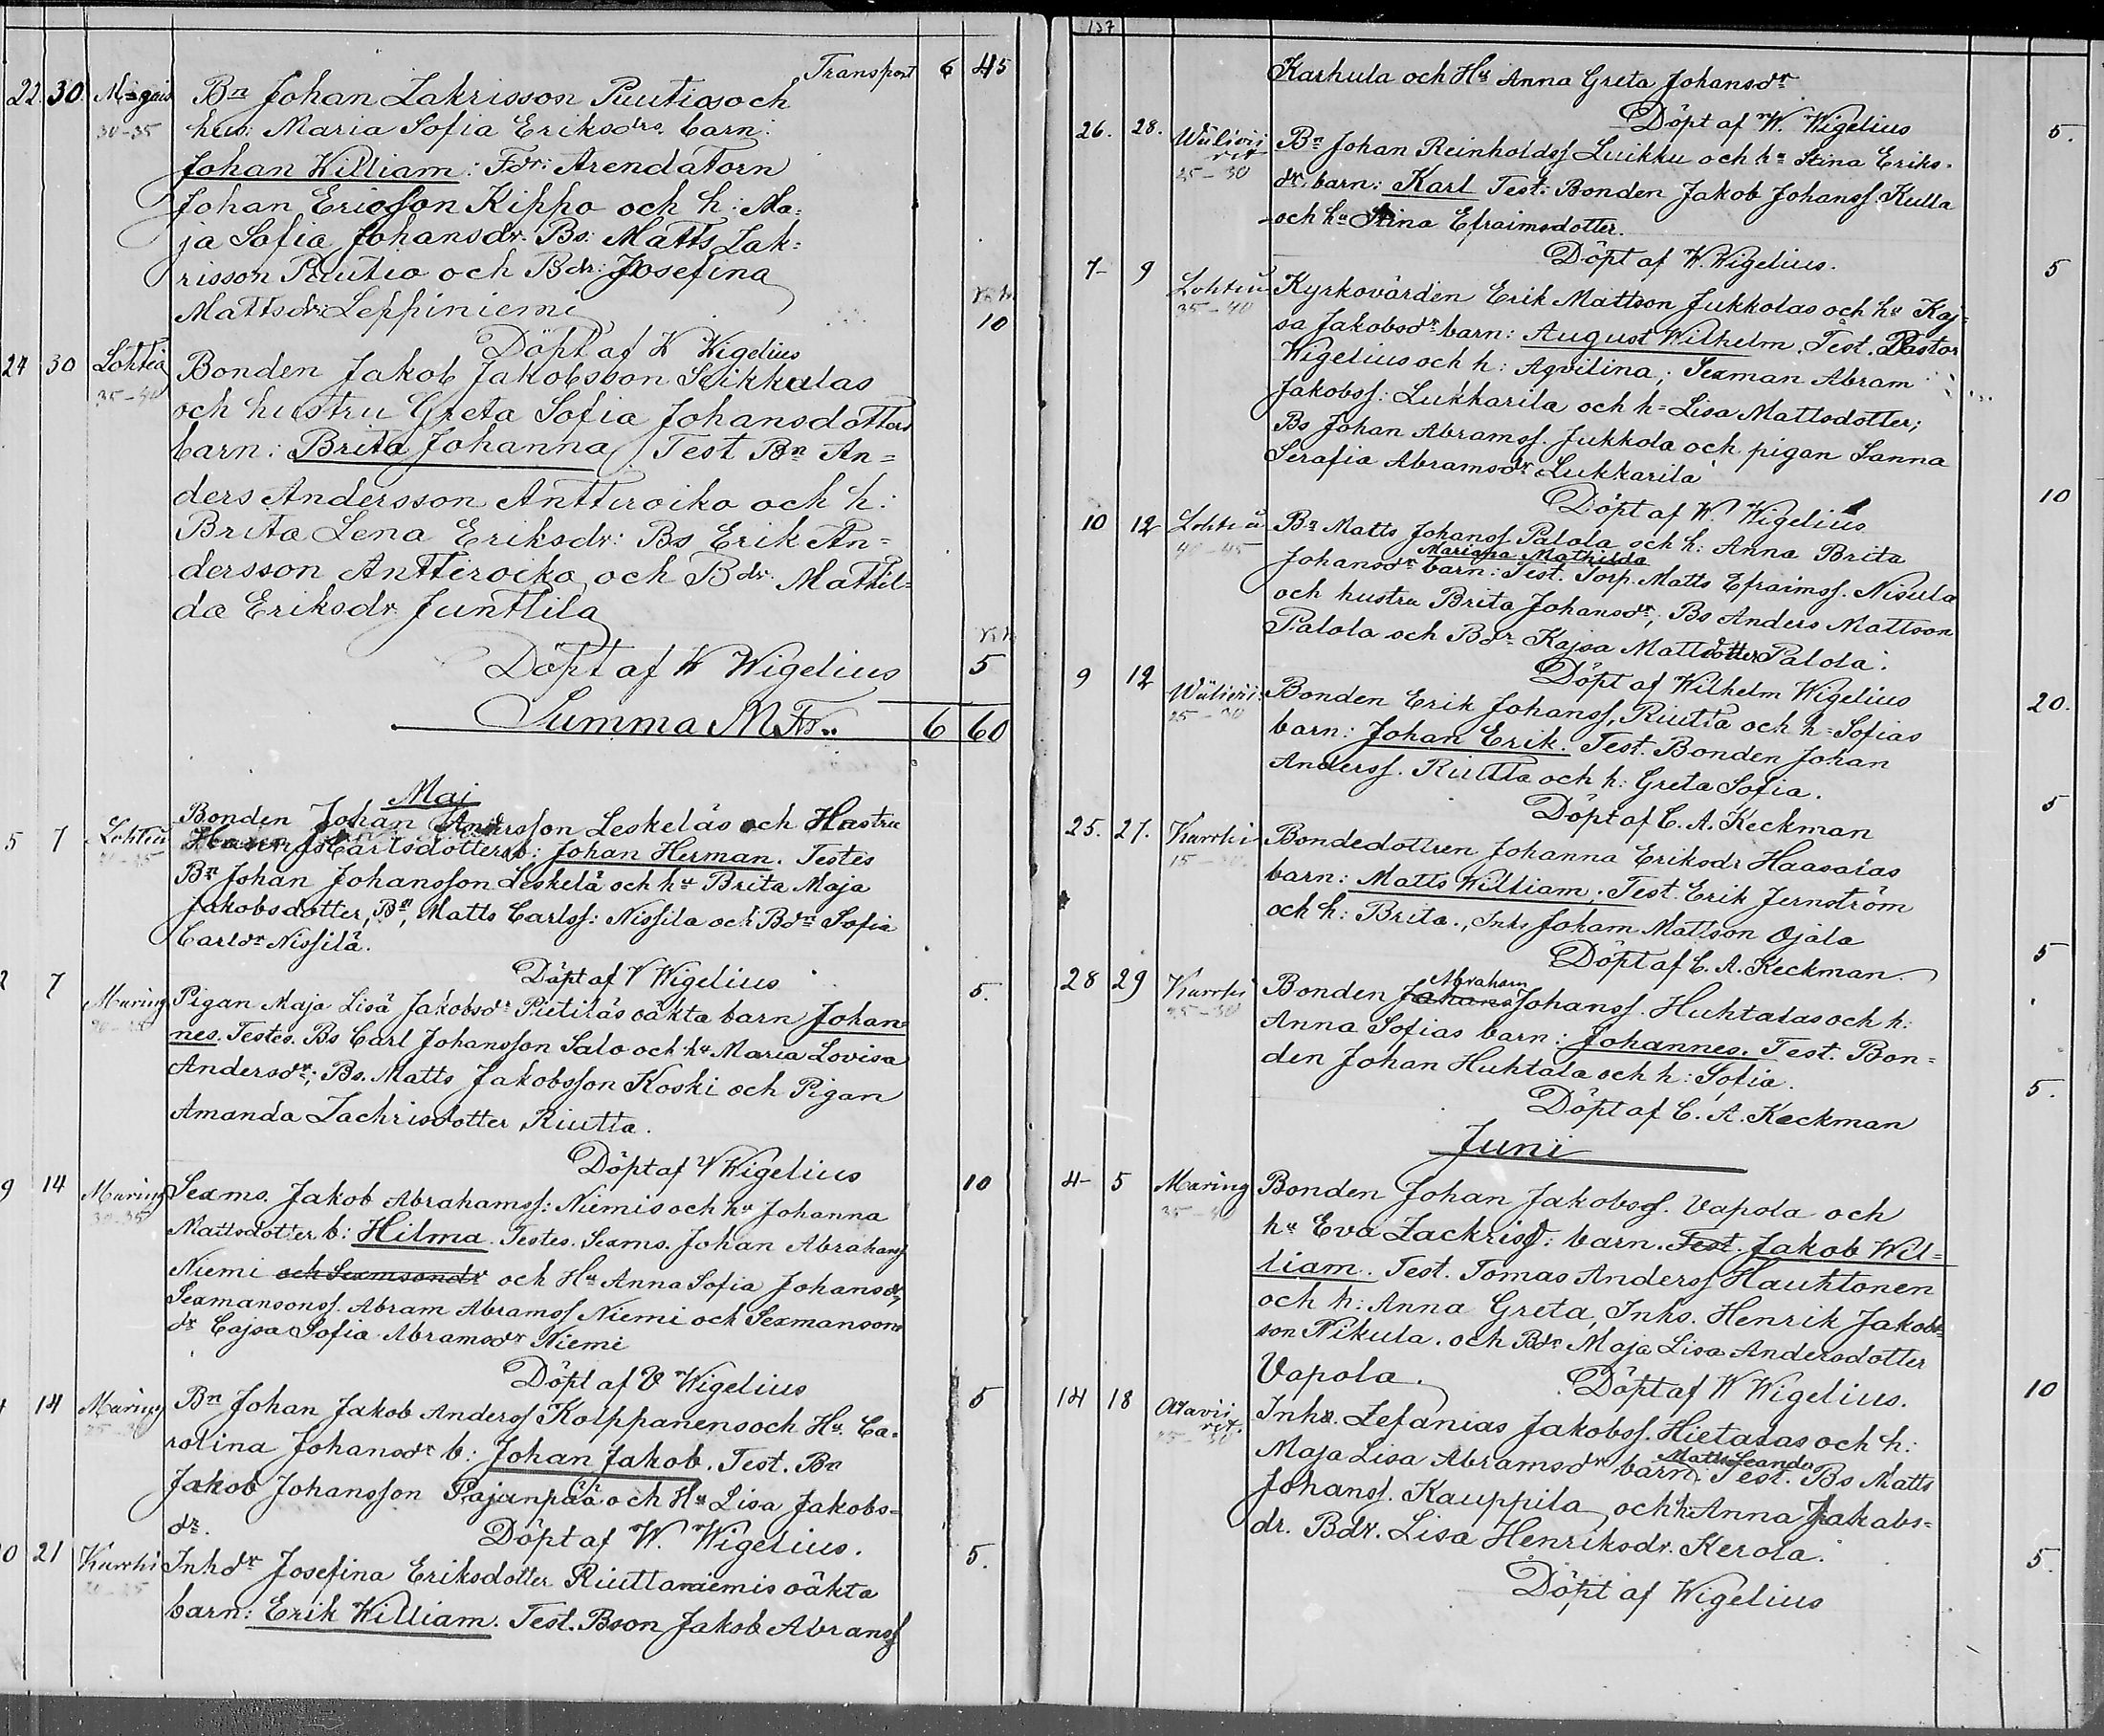 Transport 6 45
22. 30. Bn Johan Zakrisson Puutios och
30-35 hus: Maria Sofia Eriksdrs. barn:
Johan William: Fdr: Arendatorn
Johan Ericsson Kippo och h: Ma-
ja Sofia Johansdr. Bs: Matts Zak-
risson Puutio och Bdr: Josefina
Mattsdr: Leppiniemi
10
Döpt af W Wigelius
24 30 Lohtaj Bonden Jakob Jakobsson Seikkalas
35-40 och hustru Greta Sofia Johansdotters
barn: Brita Johanna. Test Bn An=
ders Andersson Anttiroiko och h:
Brita Lena Eriksdr: Bs Erik An=
dersson Anttiroiko och Bdr. Mathil=
da Eriksdr Junttila
Döpt af W Wigelius 5
Summa M Fr.. 6 60
Maj
Bonden Johan Andersson Leskeläs och Hustru
5 7 Lohtaj Carlsdotters b: Johan Herman. Testes
Bn Johan Johansson Leskelä och hu Brita Maja
Jakobsdotter, Bn, Matts Carlss: Nissila och Bdn Sofia
Carldr Nissilä.
Döpt af V Wigelius 5.
7 Maring Pigan Maja Lisä Jakobsdr Pietiläs oäkta barn Johan-
nes. Testes. Bs Carl Johansson Salo och hu Maria Lovisa
Andersdr; Bs. Matts Jakobsson Koski och Pigan
Amanda Zachrisdotter Riutta.
Döpt af V Wigelius 10
9 14 Maring Sexms. Jakob Abrahamss: Niemis och hu Johanna
30-35 Mattsdotter b: Hilma. Testes. Sexms. Johan Abrahamss
Niemi och Sexmsondr och Hu Anna Sofia Johansdr,
Sexmansons. Abram Abramss Niemi och Sexmansons
dr Cajsa Sofia Abramsdr Niemi
Döpt af V Wigelius 5
14 Maring Bn Johan Jakob Anderss Kolppanens och Hu. Ca-
rolina Johansdr b: Johan Jakob. Test. Bn
Jakob Johansson Pajunpää och Hu Lisa Jakobs-
dr. Döpt af W. Wigelius. 5.
21 Kurrki Inhdr Josefina Eriksdotter Riuttaniemis oäkta
barn: Erik William. Test. Bson Jakob Abramss
137
Karhula och Hu Anna Greta Johansdr
Döpt af W. Wigelius 5.
26. 28. Bn Johan Reinholdss Luikku och hu Stina Eriks-
25-30 dr, barn: Karl Test: Bonden Jakob Johanss. Kulla
och hu Stina Efraimsdotter.
Döpt af W. Wigelius. 5
7 9 Kyrkovärden Erik Mattson Jukkolas och hu Kaj-
35-40 sa Jakobsdr barn: August Wilhelm. Test. Pastor
Wigelius och h: Aqvilina; Sexman Abram
Jakobss: Lukkarila och h= Lisa Mattsdotter;
Bs Johan Abramss. Jukkola och pigan Sanna
Serafia Abramsdr Lukkarila
Döpt af W. Wigelius 10
10 12 Bn Matts Johanss Palola och h: Anna Brita
40-45 Mariana Mathilda
Johansdr barn: Test. Torp. Matts Efraimss. Nisula
och hustru Brita Johansdr; Bs Anders Mattson
Palola och Bdr Kajsa Mattsdotter Palola.
Döpt af Wilhelm Wigelius 20.
9 12 Bonden Erik Johanss, Riutta och h= Sofias
25-30 barn: Johan Erik. Test. Bonden Johan
Anderss. Riutta och h: Greta Sofia.
Döpt af C. A. Keckman 5
25. 27. Kurrki Bondedottren Johanna Eriksdr Haasalas
barn: Matts William. Test. Erik Jernström
och h: Brita., Inhs Joham Mattson Ojala
Döpt af C. A. Keckman 5
Abraham
28 29 Kurrki Bonden Johans Johanss. Huhtalas och h:
25-30 Anna Sofias barn: Johannes. Test. Bon=
den Johan Huhtala och h: Sofia.
Döpt af C. A. Keckman 5.
Juni
4 5 Maring Bonden Johan Jakobss. Vapola och
35-40 hu Eva Zackrisd: barn. Test. Jakob Wil=
liam. Test. Tomas Anderss Hauhtonen
och h: Anna Greta, Inhs. Henrik Jakobs=
son Nikula. och Bdr Maja Lisa Andersdotter
Vapola. Döpt af W Wigelius. 10
14 18 Inhs. Zefanias Jakobss. Hietalas och h:
Matts Leander
Maja Lisa Abramsdr barn. Test. Bs Matts
Johanss. Kauppila och h: Anna Jakobs=
dr. Bdr. Lisa Henriksdr. Kerola. 5.
Döpt af Wigelius